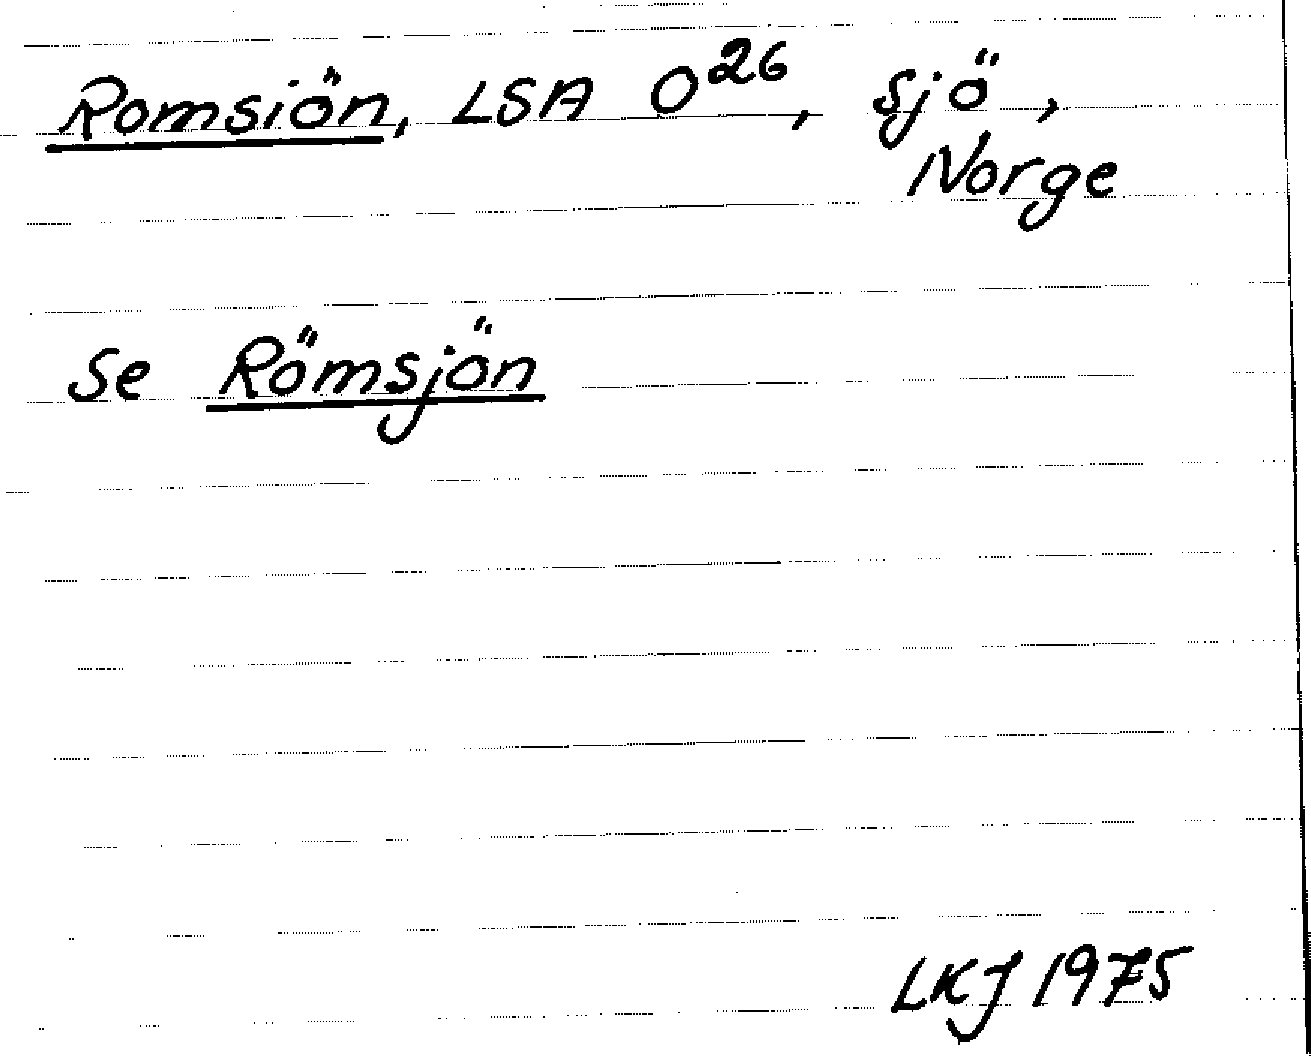 Romsiön, LSA O²⁶, sjö,
Norge
se Römsjön
LKJ 1975